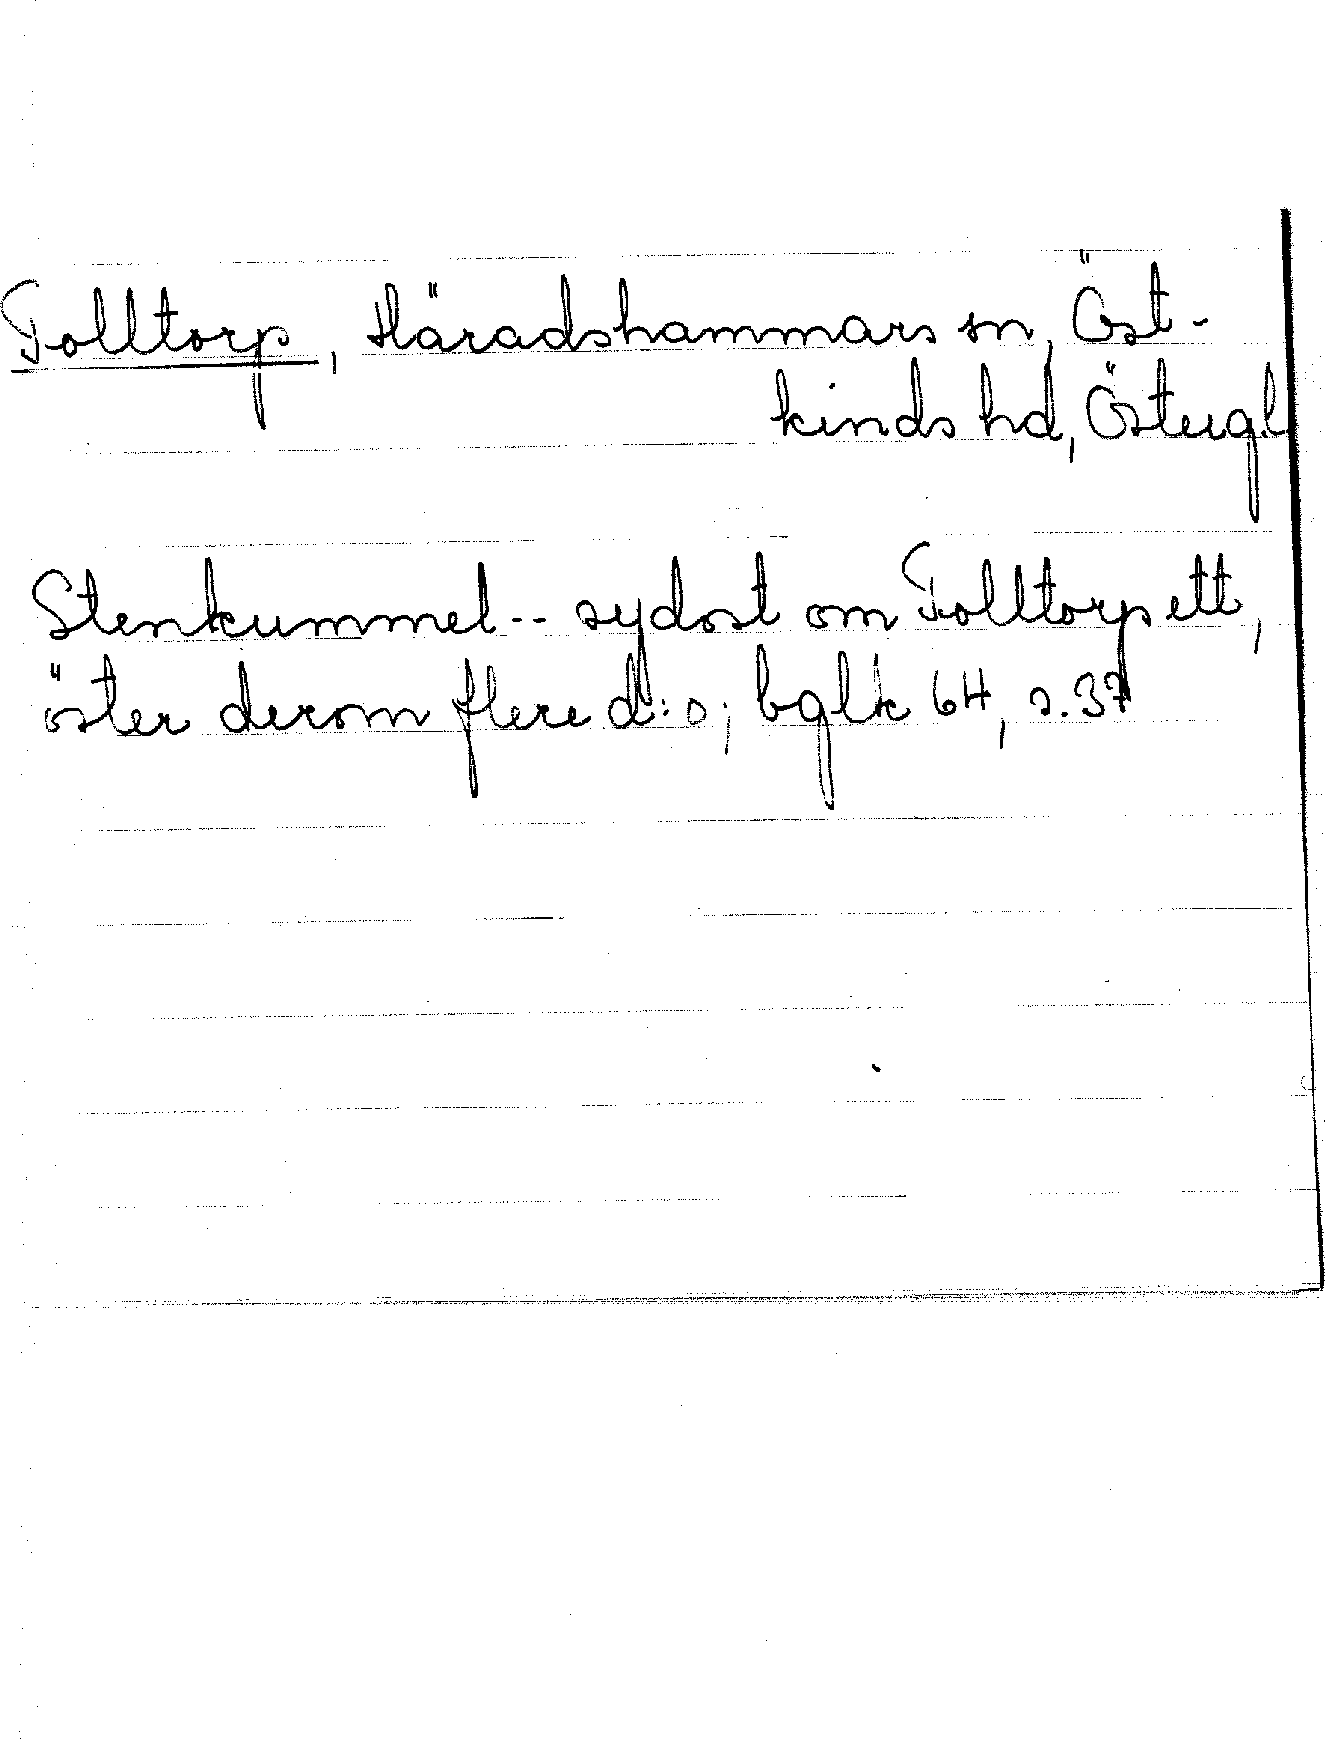 Tolltorp, Häradshammars sn, Öst-
kinds hd, Östergl
Stenkummel -- sydost om Tolltorp ett,
öster derom flere d:o; bglk 64, s. 37